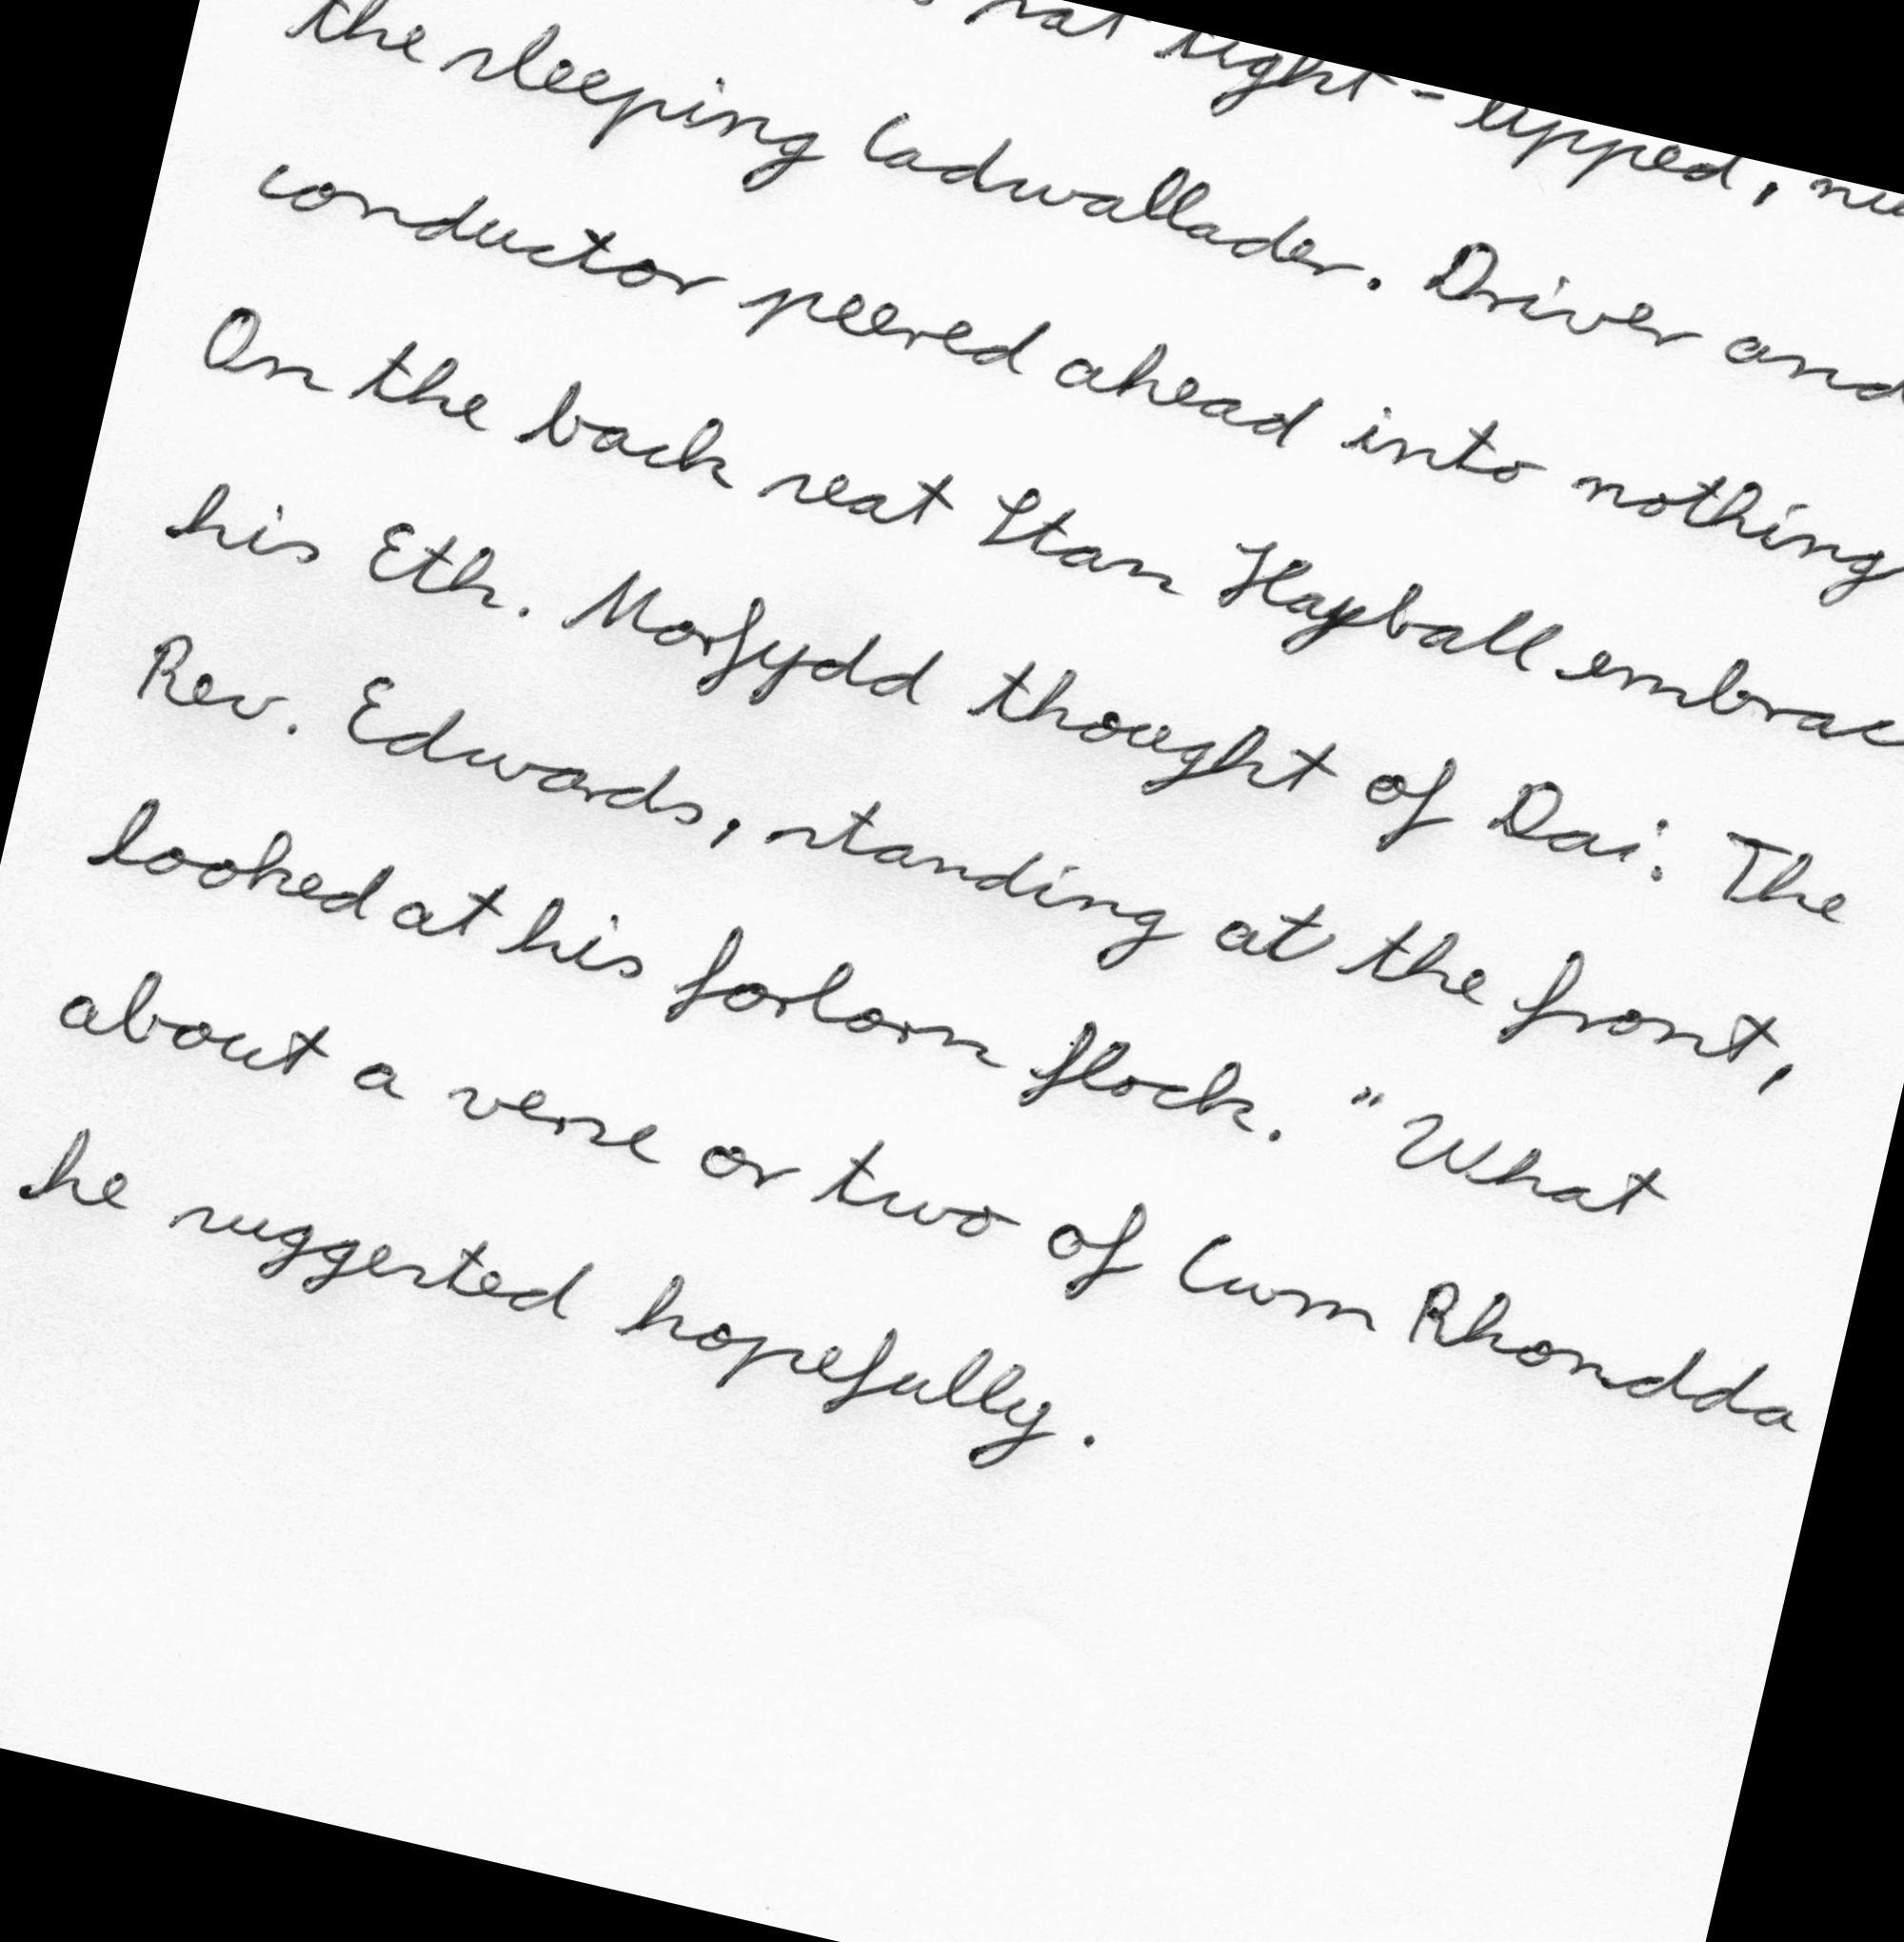 sat tight-lipped,
the sleeping Cadwallader. Driver and
conductor peered ahead into nothing
On the back seat Stan Hayball embrac
his Eth. Morfydd thought of Dai. The
Rev. Edwards, standing at the front,
looked at his forlorn flock. "What
about a verse or two of Cwm Rhondda
he suggested hopefully.